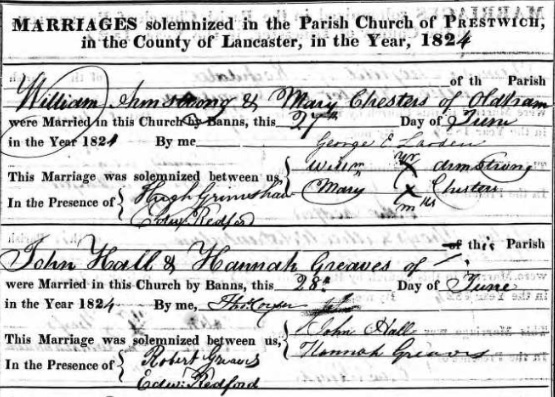 MARRIAGES solemnized in the Parish Church of PRESTWICH,
in the County of Lancaster, in the Year, 1824
of th Parish
William Armstrong & Mary Chesters of Oldham
were Married in this Church by Banns, this 27th Day of June
in the Year 1824 By me George
This Marriage was solemnized between us, Willm X Armstrong
Mary X Chesters
In the Presence of Hugh Grimshaw
Edwd Redford
of this Parish
John Hall & Hannah Greaves of
were Married in this Church by Banns, this 28th Day of June
in the Year 1824 By me,
This Marriage was solemnized between us, John Hall
Hannah Greaves
In the Presence of Robert Greaves
Edwd Redford